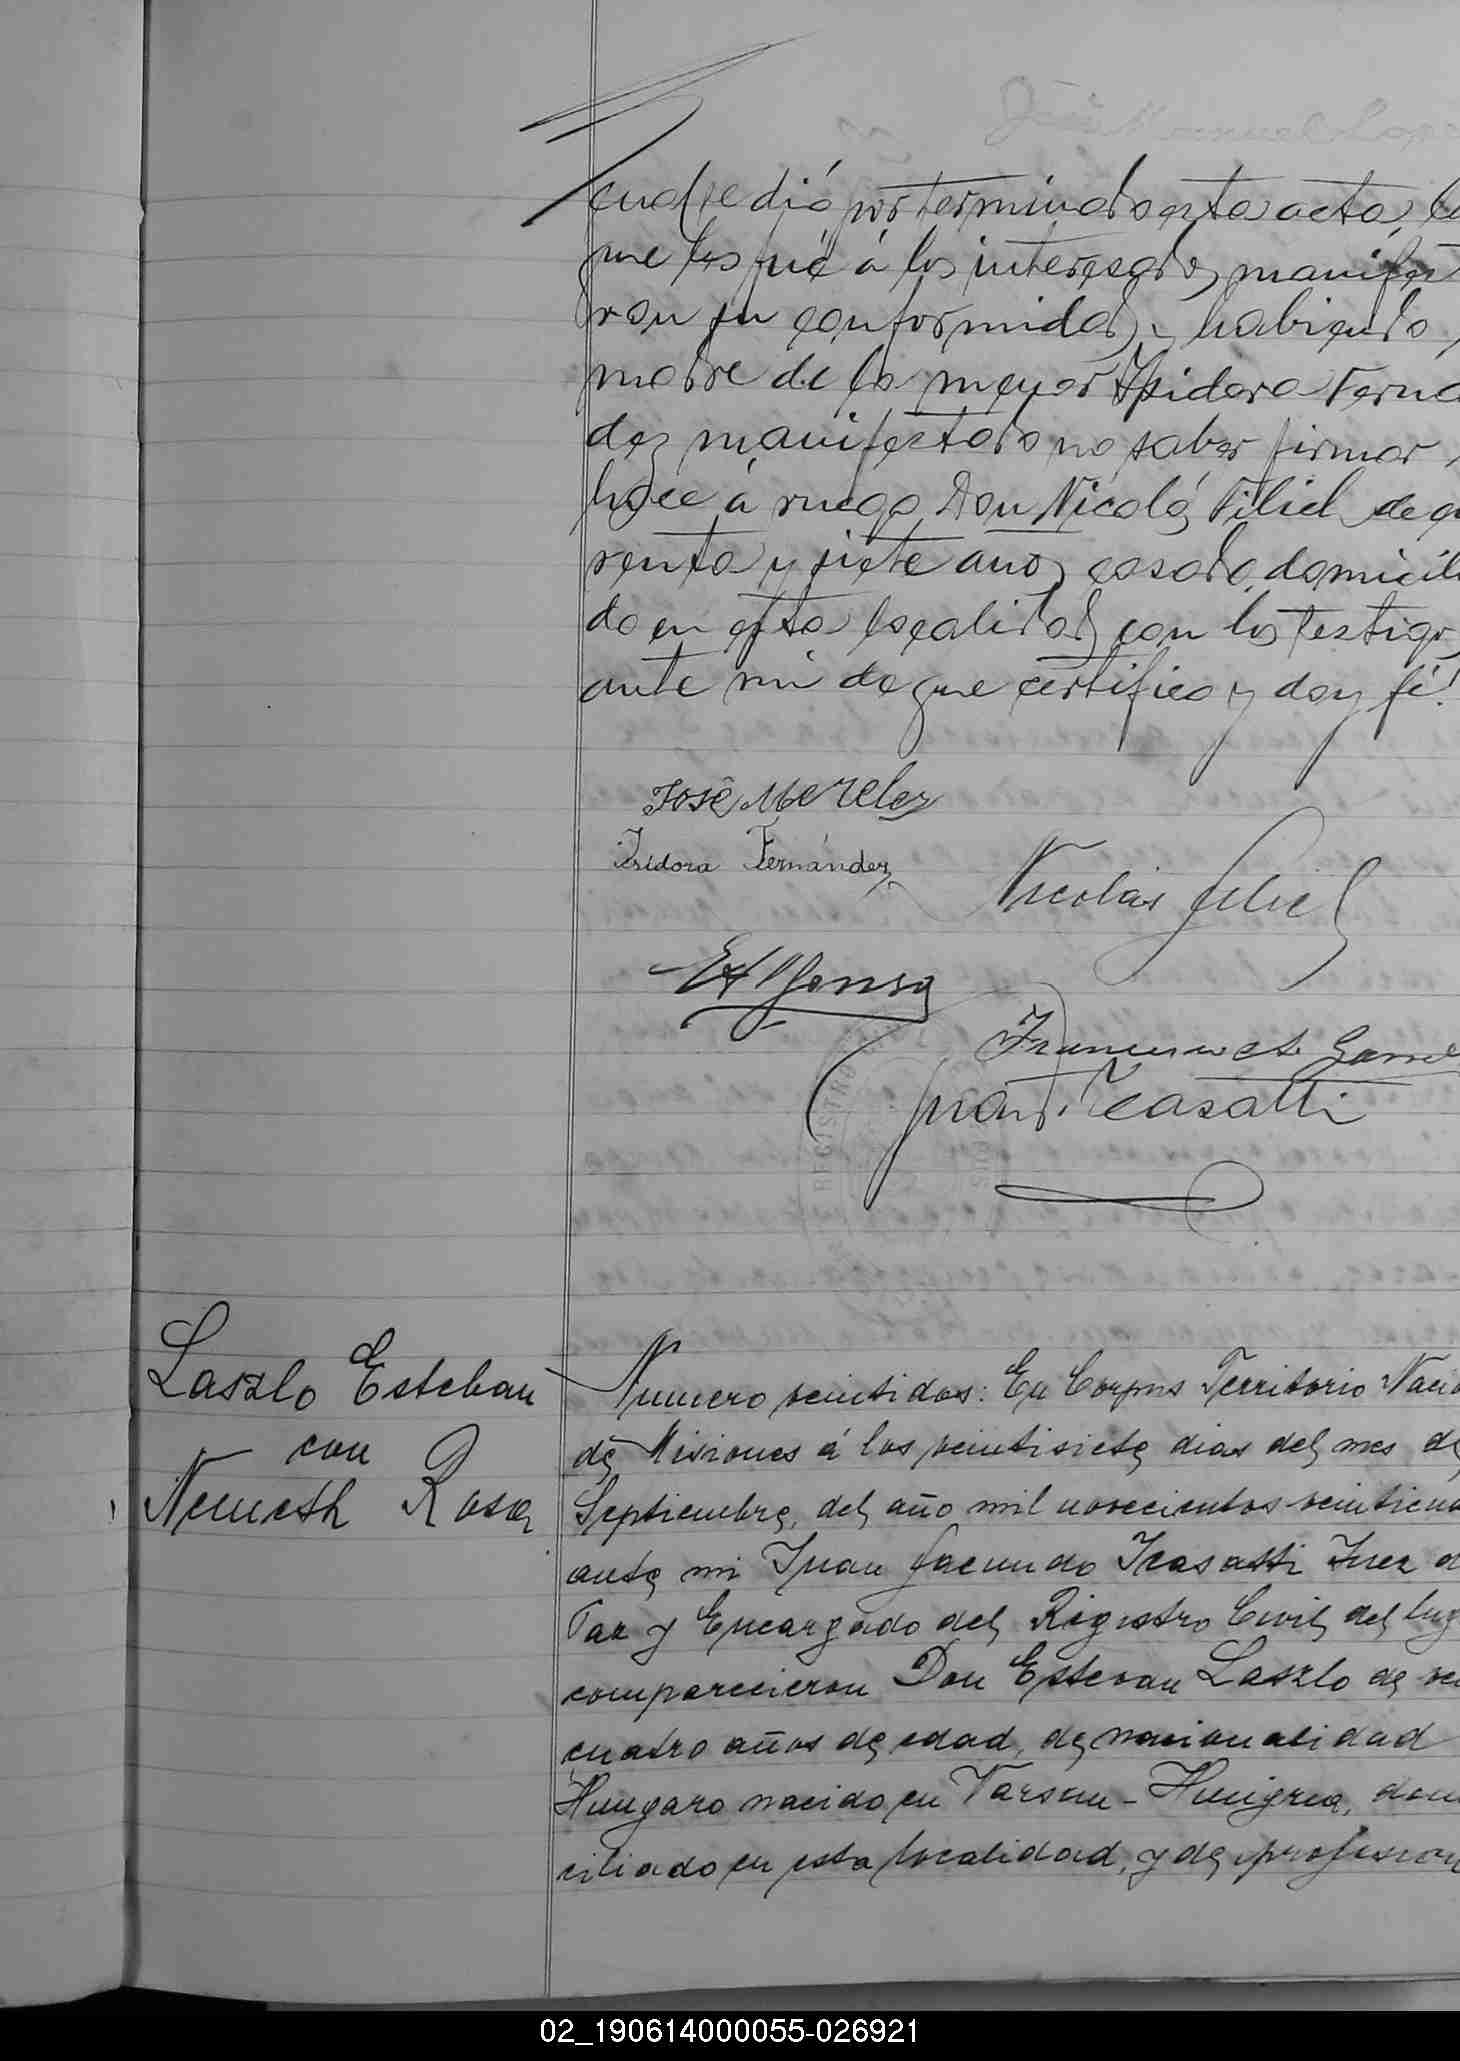 cual se dió por terminado esta acta,
que les fué á los interesados manifes
ron su conformidad y habiendo
madre de la menor Isidora Ferna
dez manifestado no saber firmar
hace á ruego Don Nicolás Filiel de
renta y siete años casado, domicili
do en esta localidad con los testigos
ante mi de que certifico y doy fé!
José Mereles
Isidora Fernández
Nicolás Filiel
E Alfonso
Juan F. Icasatti
REGISTRO
Laszlo Esteban
con
Nemeth Rosa
Numero veintidos: En Corpus Territorio Nacio
de Misiones á los veintisiete dias del mes de
Septiembre, del año mil novecientos
ante mi Juan Facundo Icasatti Juez d
Paz y Encargado del Registro Civil del lug
comparecieron Don Estevan Laszlo de
cuatro años de edad, de nacionalidad
Hungaro nacido en - Hungria, domi
ciliado en esta localidad, y de profesion
02_190614000055-026921